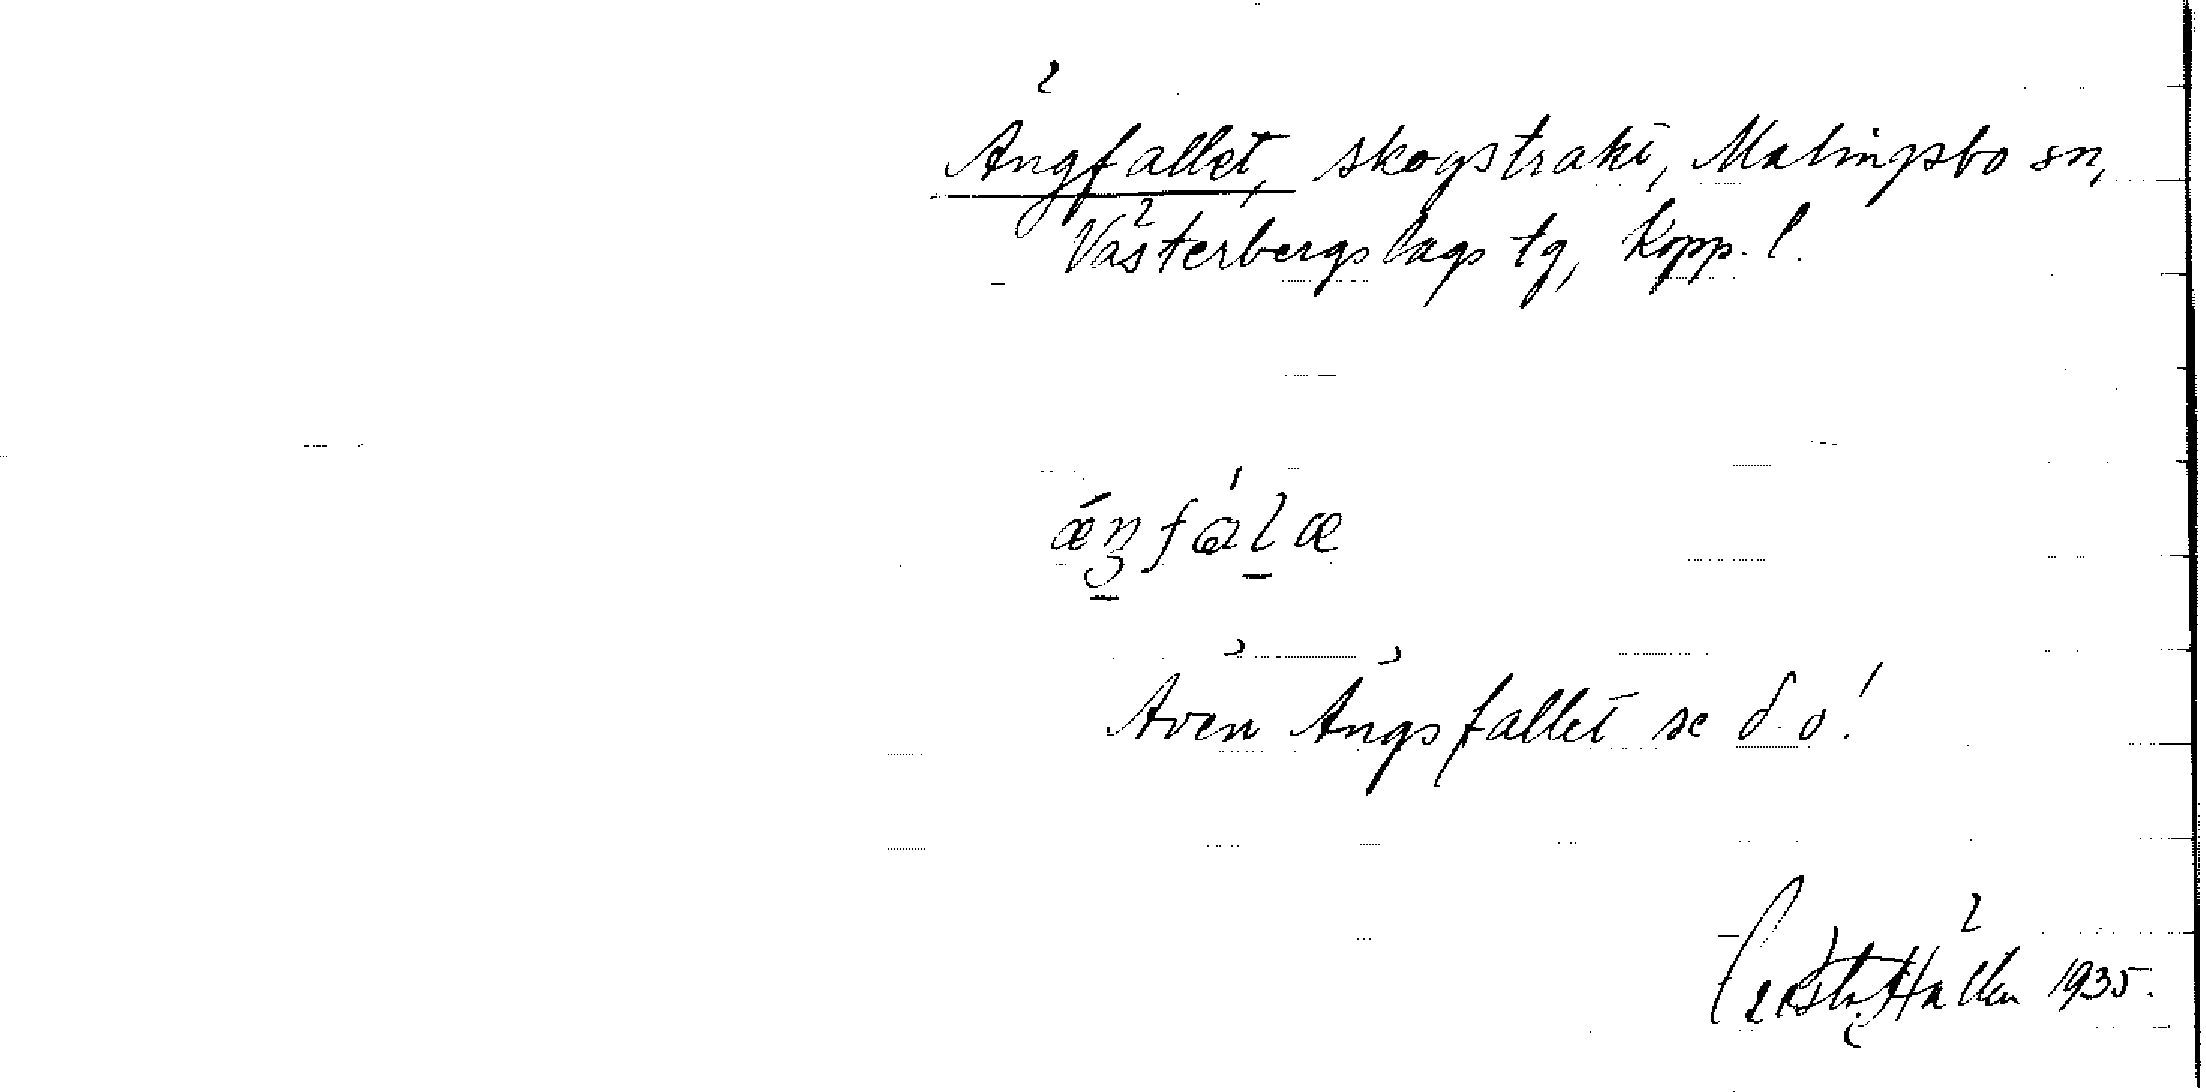 Ängfallet, skogstrakt, Malingsbo sn,
Västerbergslags tg, Kopp. l.
Även Ängsfallet se d.o!
Hällen 1935.